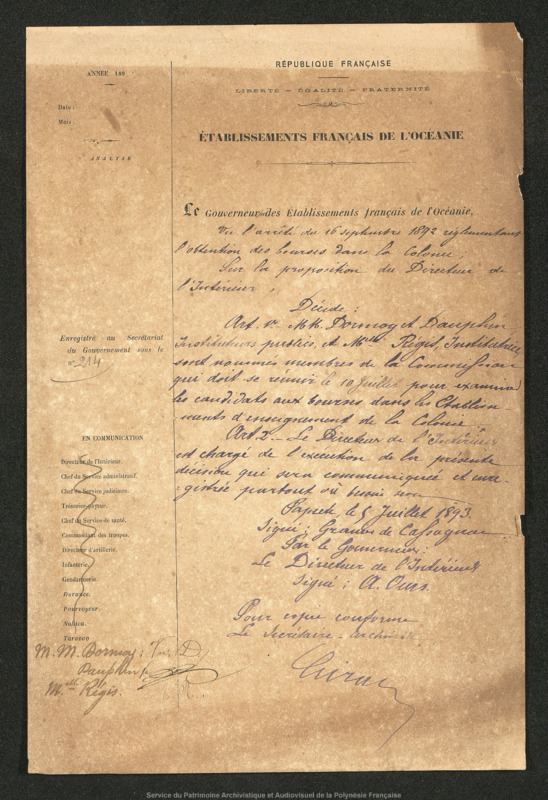 ANNÉE 189
Date :
Mois :
ANALYSE
Enregistré au Secrétariat
du Gouvernement sous le
n° 214
EN COMMUNICATION
Directeur de l'Intérieur.
Chef du Service administratif.
Chef du Service judiciaire.
Trésorier-payeur.
Chef du Service de santé.
Commandant des troupes.
Directeur d'artillerie.
Infanterie.
Gendarmerie.
Durance.
Pourvoyeur.
M. M. Dormoy
Dauphin
M.elle Régis.
RÉPUBLIQUE FRANÇAISE
LIBERTÉ — ÉGALITÉ — FRATERNITÉ
ÉTABLISSEMENTS FRANÇAIS DE L'OCÉANIE
Le Gouverneur des Établissements français de l'Océanie,
Vu l'arrêté du 16 septembre 1892 réglementant
l'obtention des bourses dans la Colonie ;
Sur la proposition du Directeur de
l'Intérieur,
Décide :
Art. 1er MM. Dormoy et Dauphin
Instituteurs publics, et Melle Régis, Institutrice
sont nommés membres de la Commission
qui doit se réunir le 10 Juillet pour examiner
les candidats aux bourses dans les Établisse
ments d'enseignement de la Colonie.
Art. 2 — Le Directeur de l'Intérieur
est chargé de l'exécution de la présente
décision qui sera communiquée et enre
gistrée partout où besoin sera
Papeete, le 5 Juillet 1893.
Signé : de Cassagnac
Par le Gouverneur :
Le Directeur de l'Intérieur
Signé : A. Ours
Pour copie conforme
Le Secrétaire-archiviste
Service du Patrimoine Archivistique et Audiovisuel de la Polynésie Française